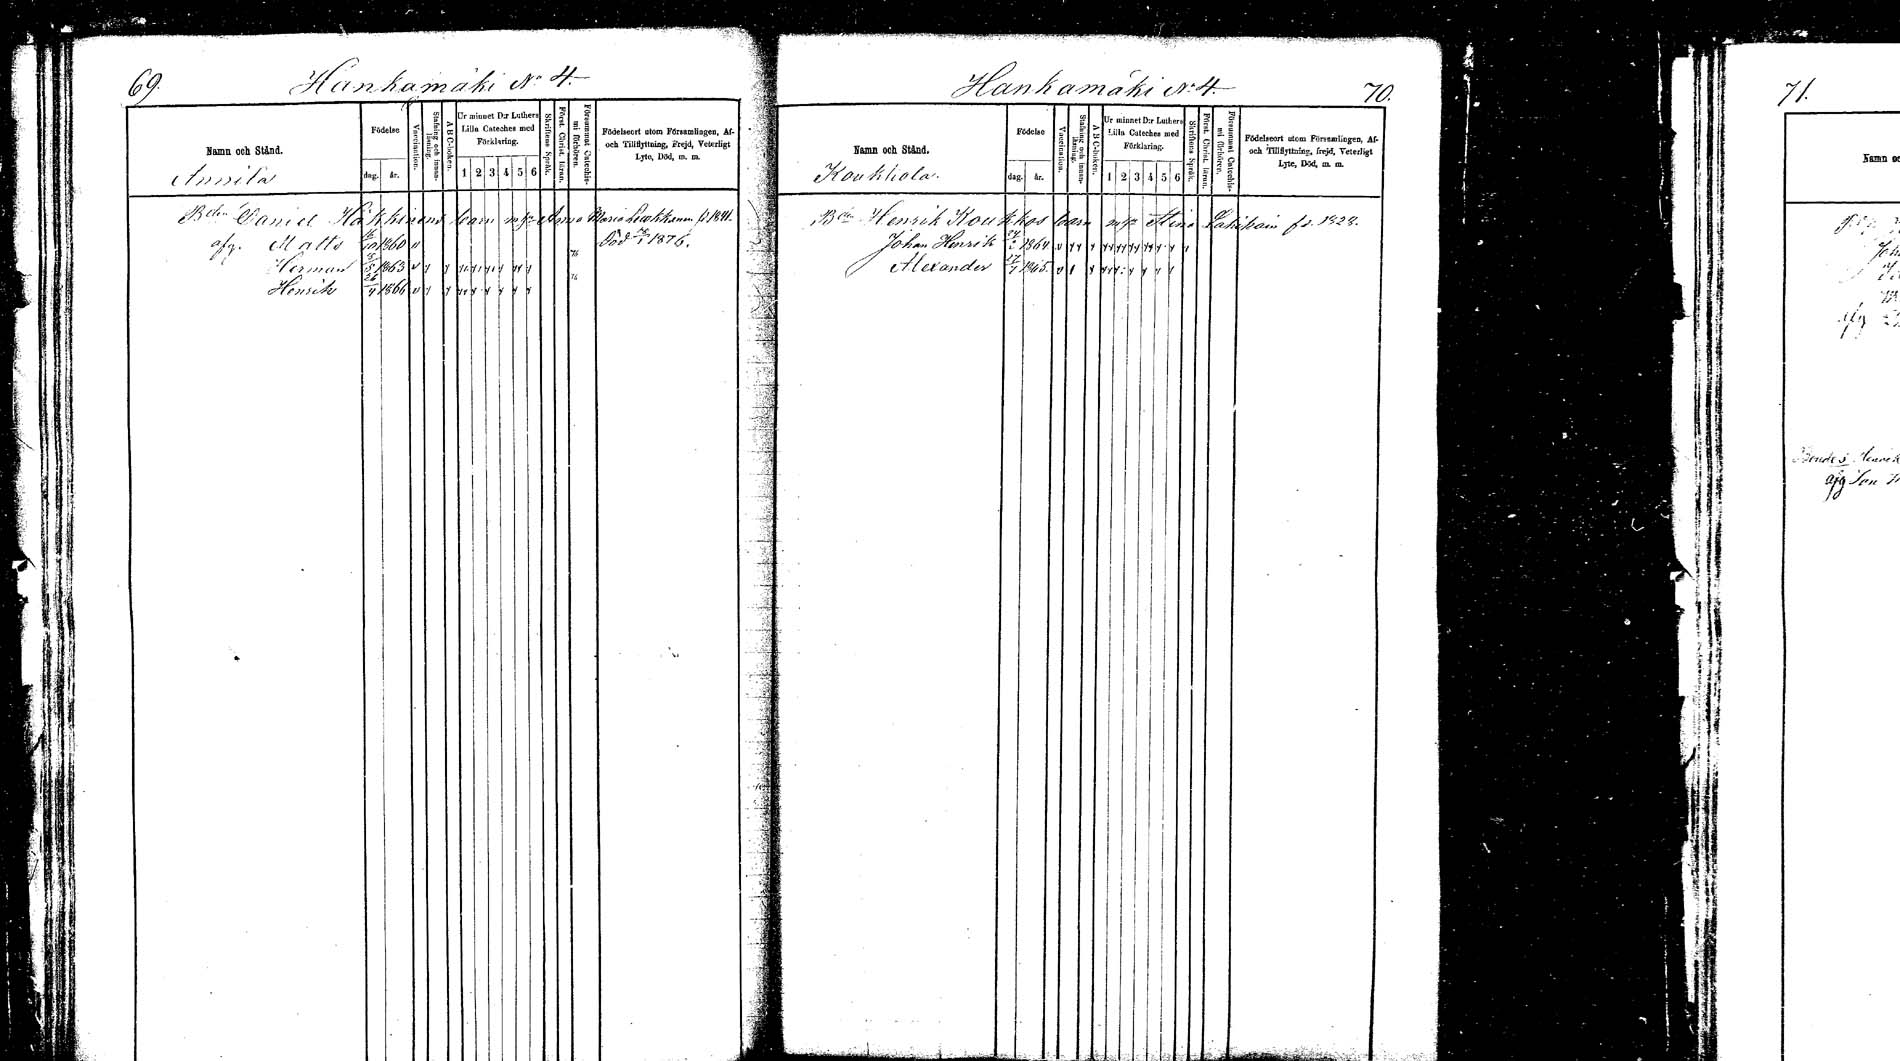 69.
Hankamäki No 4.
Namn och Stånd.
Annila
Födelse
dag.
år.
Vaccination.
Stafning och innanläsning.
A B C-boken.
Ur minnet D:r Luthers Lilla Cateches med Förklaring.
1 2 3 4 5 6
Skriftens Språk.
Först. Christ. läran.
Försummat Catechismi förhören.
Födelseort utom Församlingen, Af- och Tillflyttning, frejd, Veterligt Lyte, Död, m. m.
Bden Daniel Häkkinens barn m. Anna Maria f. 1841.
afg. Matts 1860 Död 1876.
Herman 1863
Henrik 1866
Hankamäki No 4.
70.
Namn och Stånd.
Koukkola.
Födelse
dag.
år.
Vaccination.
Stafning och innanläsning.
A B C-boken.
Ur minnet D:r Luthers Lilla Cateches med Förklaring.
1 2 3 4 5 6
Skriftens Språk.
Först. Christ. läran.
Försummat Catechismi förhören.
Födelseort utom Församlingen, Af- och Tillflyttning, frejd, Veterligt Lyte, Död, m. m.
Bden Henrik Koukkos barn Stina f. 1828.
Johan Henrik 1864
Alexander 17/7 1865.
71.
Namn oc
Bondes Henrik
afg Son